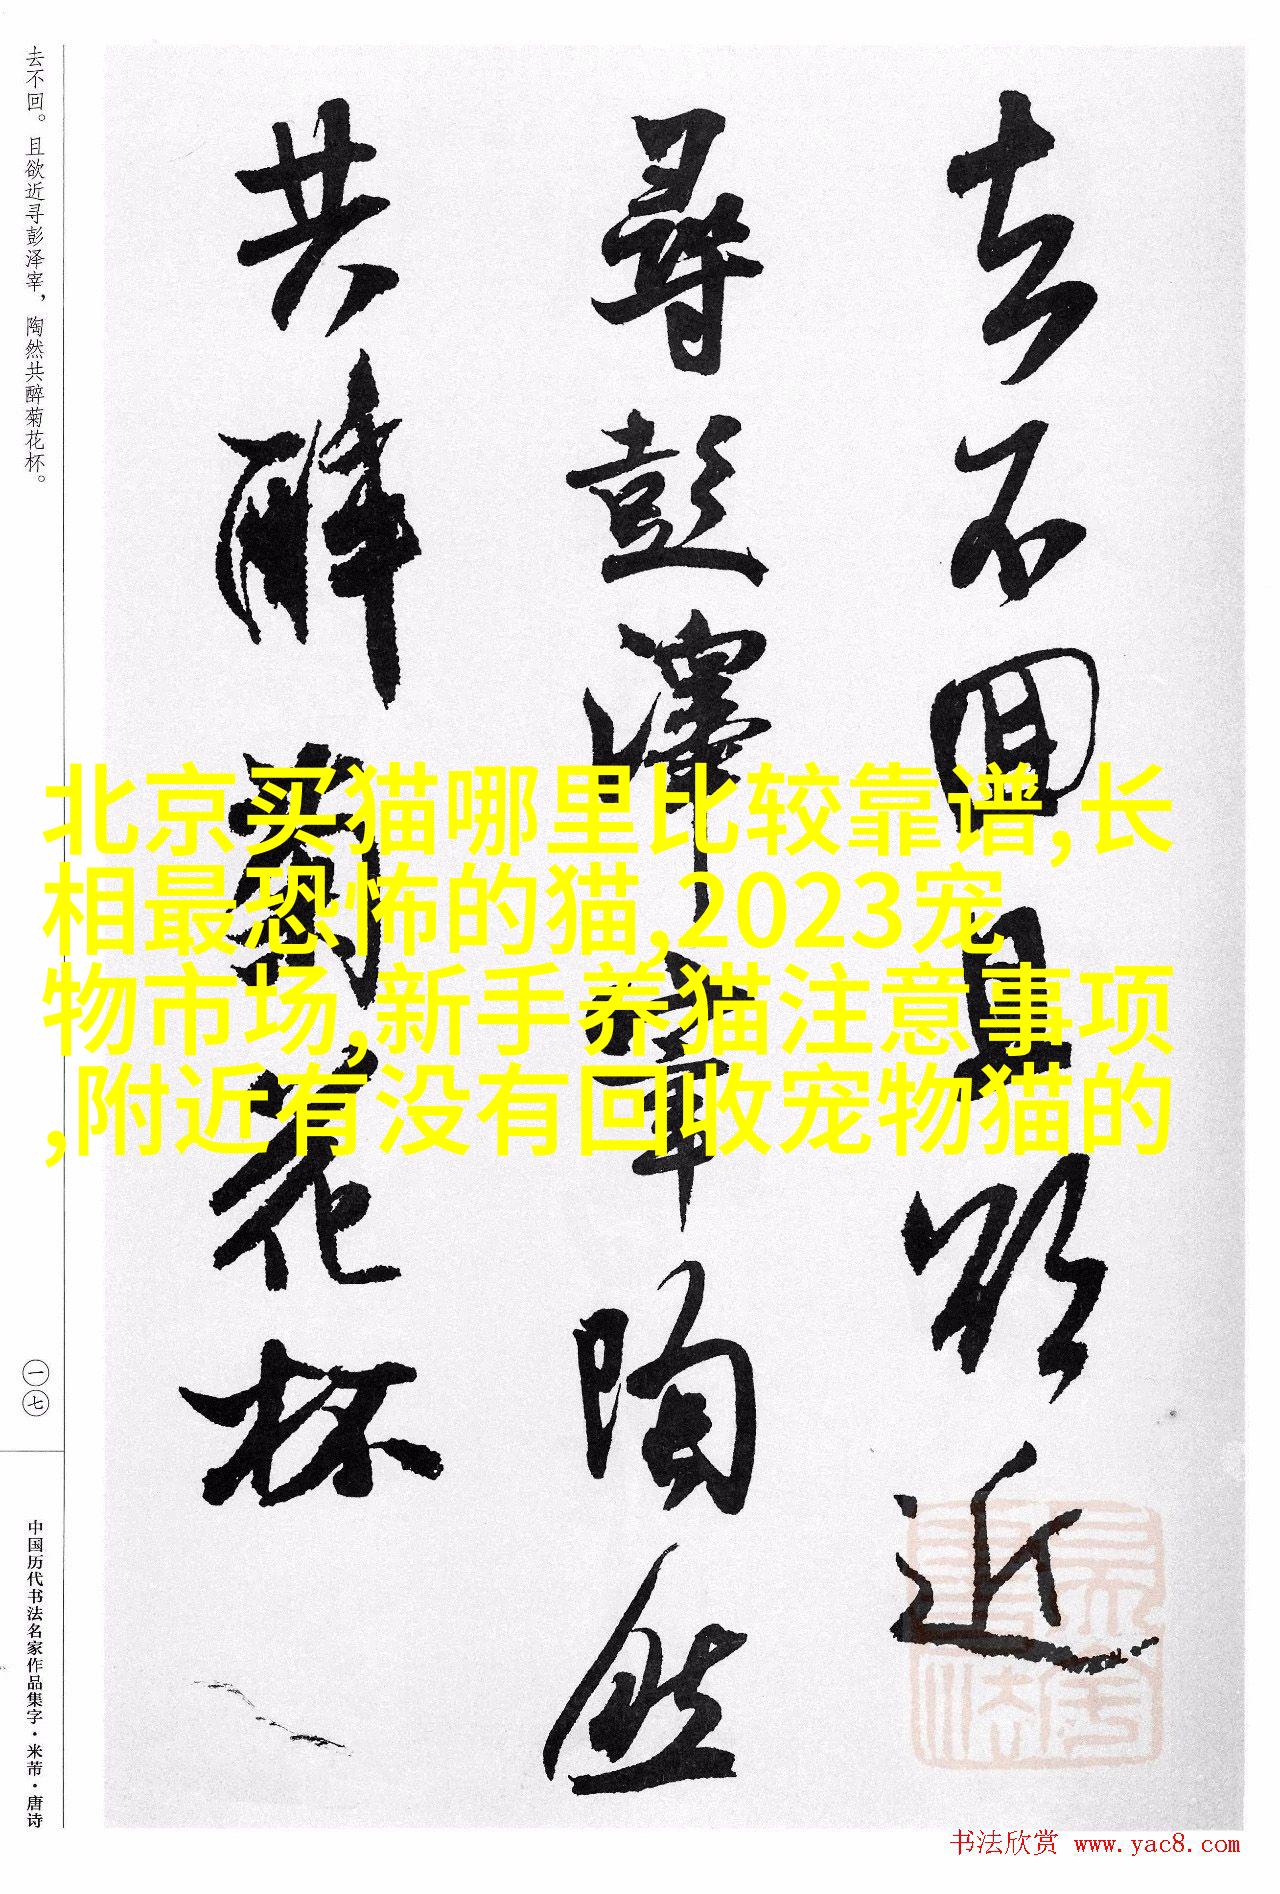 去不回且欲近
尋彭澤宰陶然
共醉菊花杯
去不回。且欲近寻彭泽宰，陶然共醉菊花杯。
一七
中国历代书法名家作品集字·米芾·唐诗
北京买猫哪里比较靠谱,长
相最恐怖的猫,2023宠
物市场,新手养猫注意事项
,附近有没有回收宠物猫的
书法欣赏 www.yac8.com